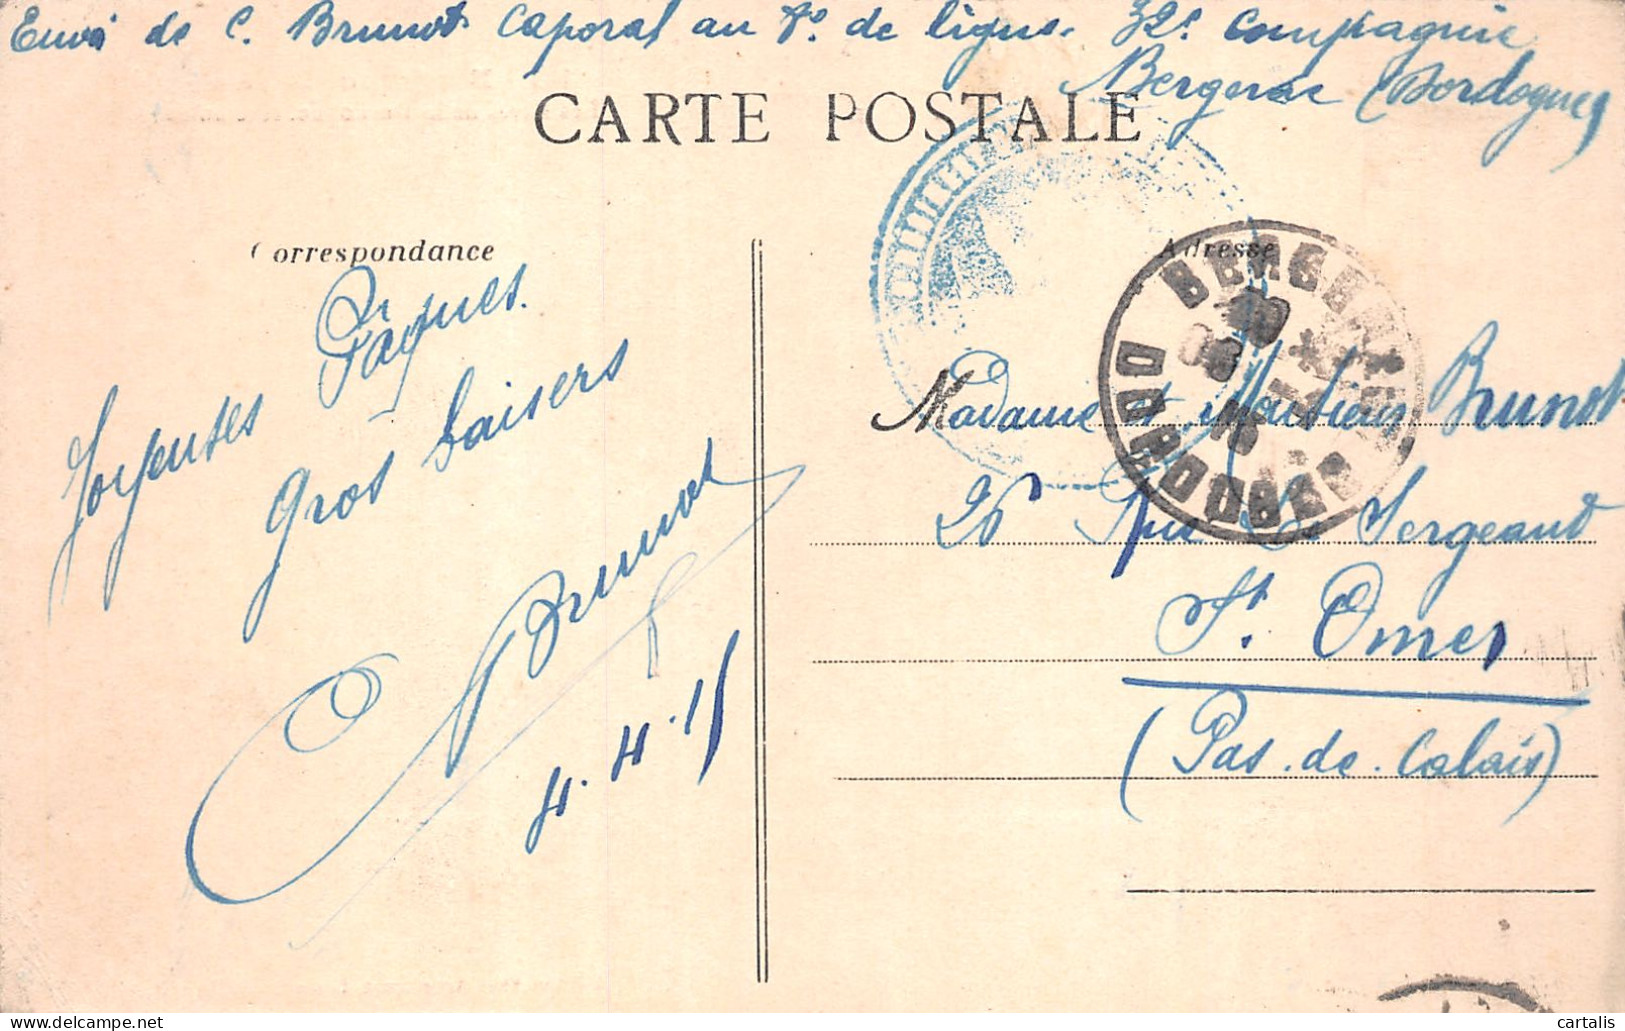 Envoi de C. Brunot Caporal au 7e. de ligne. 32e Compagnie
Bergerac (Dordogne)
CARTE POSTALE
Correspondance
Adresse
Joyeuses Pâques.
Gros baisers
C Brunot
4.4.15
BERGERAC
15
DORDOGNE
Madame et Monsieur Brunot
26 Rue du Sergeant
St. Omer
(Pas.de.Calais)
cartalis